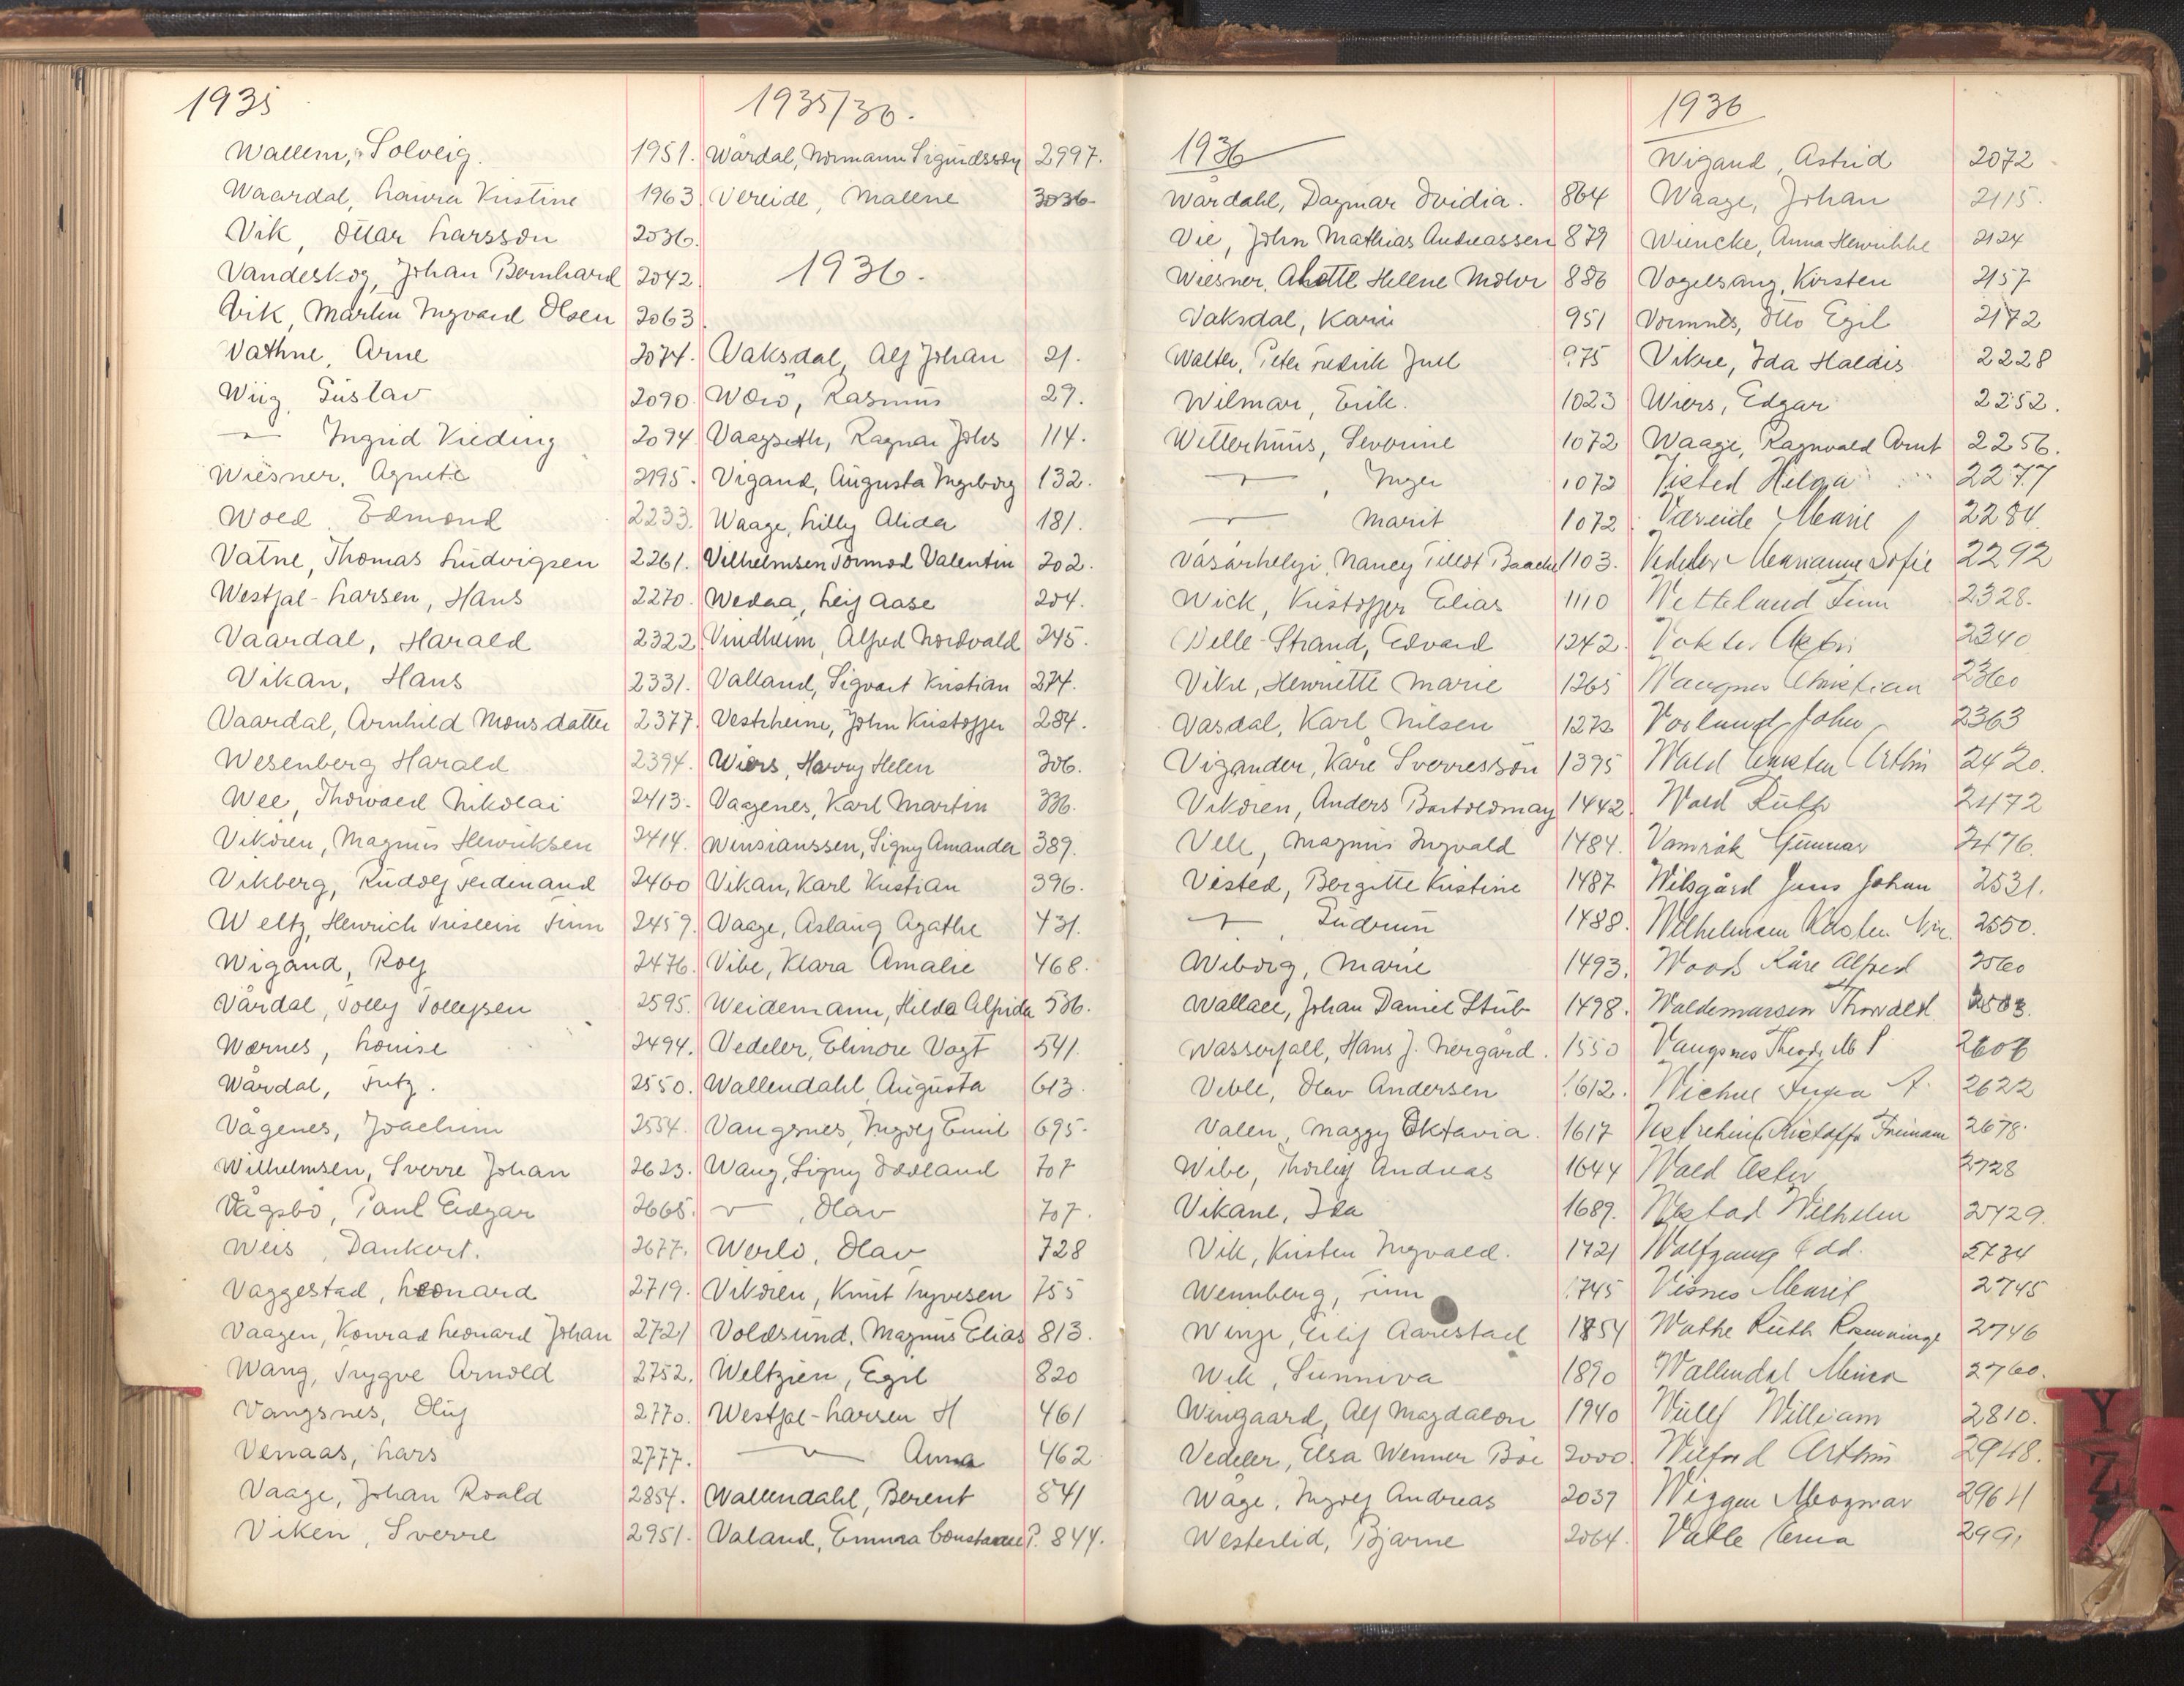 1935
Wallem, Solveig. 1951.
Waardal, Laura Kristine 1963.
Vik, Ottar Larsson 2036.
Vandeskog, Johan Bernhard 2042.
Vik, Martin Ingvard Olsen 2063.
Vathne, Arne 2074.
Wiig, Gustav 2090.
Ingrid Vieding 2094
Wiesner, Agnete 2195.
Woed, Edmond 2233.
Vatne, Thomas Ludvigsen 2261.
Westfal-Larsen, Hans 2270.
Vaardal, Harald 2322.
Vikan, Hans 2331.
Vaardal, Arnhild Monsdatter 2377.
Wesenberg Harald 2394.
Wee, Thorvald Nikolai 2413.
Vikören, Magnus Henriksen 2414.
Vikberg, Rudolf Ferdinand 2460
Weltz, Henrich Finn 2459.
Wigand, Rolf 2476.
Vårdal, Tollef Tollefsen 2595.
Wærnes, Louise 2494.
Wårdal, Fritz. 2550.
Vågenes, Joachim 2554.
Wilhelmsen, Sverre Johan 2623.
Vågsbö, Paul Edgar 2665.
Weis, Dankert. 2677.
Vaggestad, Leonard 2719.
Vaagen, Konrad Leonard Johan 2721
Wang, Trygve Arnold 2752.
Vangsnes, Oluf 2770.
Venaas, Lars 2777.
Vaage, Johan Roald 2854.
Viken, Sverre 2951.
1935/36.
Wårdal, Normann Sigurdssön 2997.
Vereide, Malene 3036
1936.
Vaksdal, Alf Johan 21.
Rasmus 29.
Vaagseth, Ragnar Johs 114.
Vigand, Augusta Ingeborg 132.
Waage, Lilly Alida 181.
Vilhelmsen Tormod Valentin 202.
Wedaa, Leif Aase 204.
Vindheim, Alfred Nordvald 245.
Valland, Sigvart Kristian 274.
Vestrheim, John Kristoffer 284.
Wiers, Harry Helen 306.
Vaagenes, Karl Martin 336.
Winsianssen, Signy Amanda 389.
Vikan, Karl Kristian 396.
Vaage, Aslaug Agathe 431.
Vibe, Klara Amalie 468.
Weidemann, Hilda Alfrida 536.
Vedeler, Elinore Vogt 541.
Wallendahl, Augusta 613.
Vangsnes, Ingolf Emil 695.
Wang, Signy 707
Olav 707.
Werlo, Olav 728
Vikören, Knut Ingvesen 755
Voldsund, Magnus Elias 813.
Weltzien, Egil 820
Westfal-Larsen H 461
Anna 462
Wallendahl, Berent 841
Valand, Emma Constanse P. 844.
1936
Wårdahl, Dagmar Ovidia. 864
Vie, John Mathias Andreassen 879
Wiesner, Helene 886
Vaksdal, Karin 951
Walter, Peter Fredrik Juel 975
Wilmar, Erik. 1023
Witterhuus, Severine 1072
Inger 1072
Marit 1072
Vásárhelyi, Nancy Baache 1103.
Wick, Kristoffer Elias 1110
Welle-Strand, Edvard 1242.
Vikre, Henriette Marie 1265
Vasdal, Karl Nilsen 1272
Vigander, Kåre Sverressön 1395
Vikören, Anders 1442.
Vell, Magnus Ingvald 1484.
Visted, Bergitte Kristine 1487
Gudrun 1488.
Wiborg, Marie 1493.
Wallace, Johan Daniel Stub 1498.
Wasserfall, Hans J. Nergård. 1550
Veble, Olav Andersen 1612.
Valen, Maggy Oktavia. 1617
Wibe, Thorleif Andreas 1644
Vikane, Ida 1689.
Vik, Kristen Ingvald. 1721
Wennberg, Finn 1745
Winge, Eilif Aarestad 1854
Wik, Sunniva 1890
Wingaard, Alf Magdalon 1940
Vedeler, Elsa Wenner Böe 2000.
Wåge, Ingolf Andreas 2039
Westerlid, Bjarne 2064.
1936
Wigand, Astrid 2072
Waage, Johan 2115.
Wiencke, Anna Henrikke 2124
Vogelsang, Kirsten 2157
Vormnes, Otto Egil 2172
Vikre, Ida Haldis 2228
Wiers, Edgar 2252.
Waage, Ragnvald Arnt 2256.
Visted Helga 2277.
Væreide, Marie 2284.
Vedeler Marianne Sofie 2292
Wetteland Finn 2328.
2340
Christian 2360
Vorland John 2363
Wald Arthur 2420.
Wold Ruth 2472
Vamråk Gunnar 2476.
Wilsgård Jens Johan 2531.
Wilhelmsen 2550.
Woods Kåre Alfred 2560
Waldemarsen Thorvald
Vangsnes 2606
2622
Vestrheim Kristoffer 2678.
Wald Ester 2728
Wilhelm
Wolfgang Edd. 2734
Visnes Marit 2745
Wathe Ruth 2746
Wallendal Minca 2760.
Wulff William 2810.
Wilford Arthur 2948.
2964
Valle Erna 2991
Y
Z